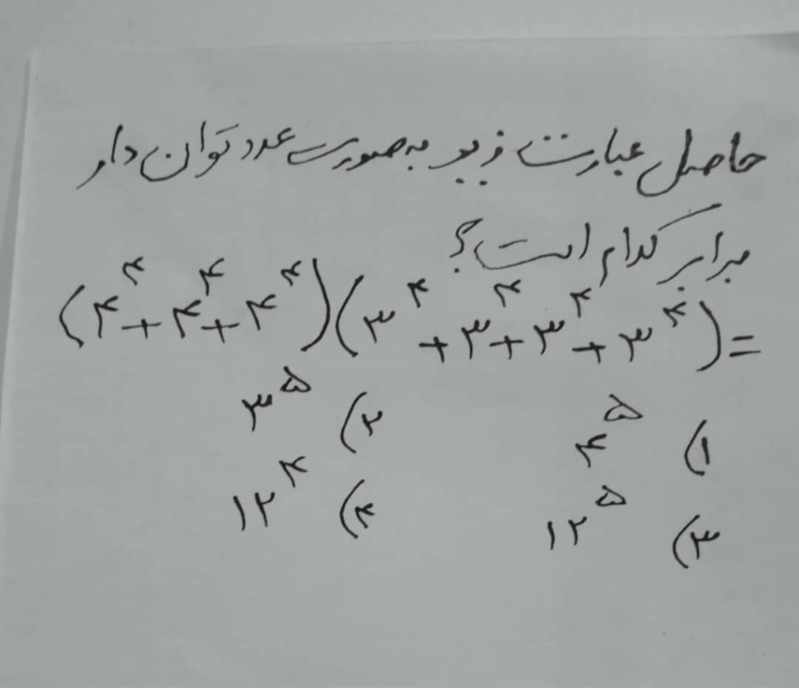 حاصل عبارت زیر به صورت عدد توان دار
برابر کدام است؟
(۴^۴+۴^۴+۴^۴)(۳^۴+۳^۴+۳^۴+۳^۴)=
۱) ۴^۵ ۲) ۳^۵
۳) ۱۲^۵ ۴) ۱۲^۴